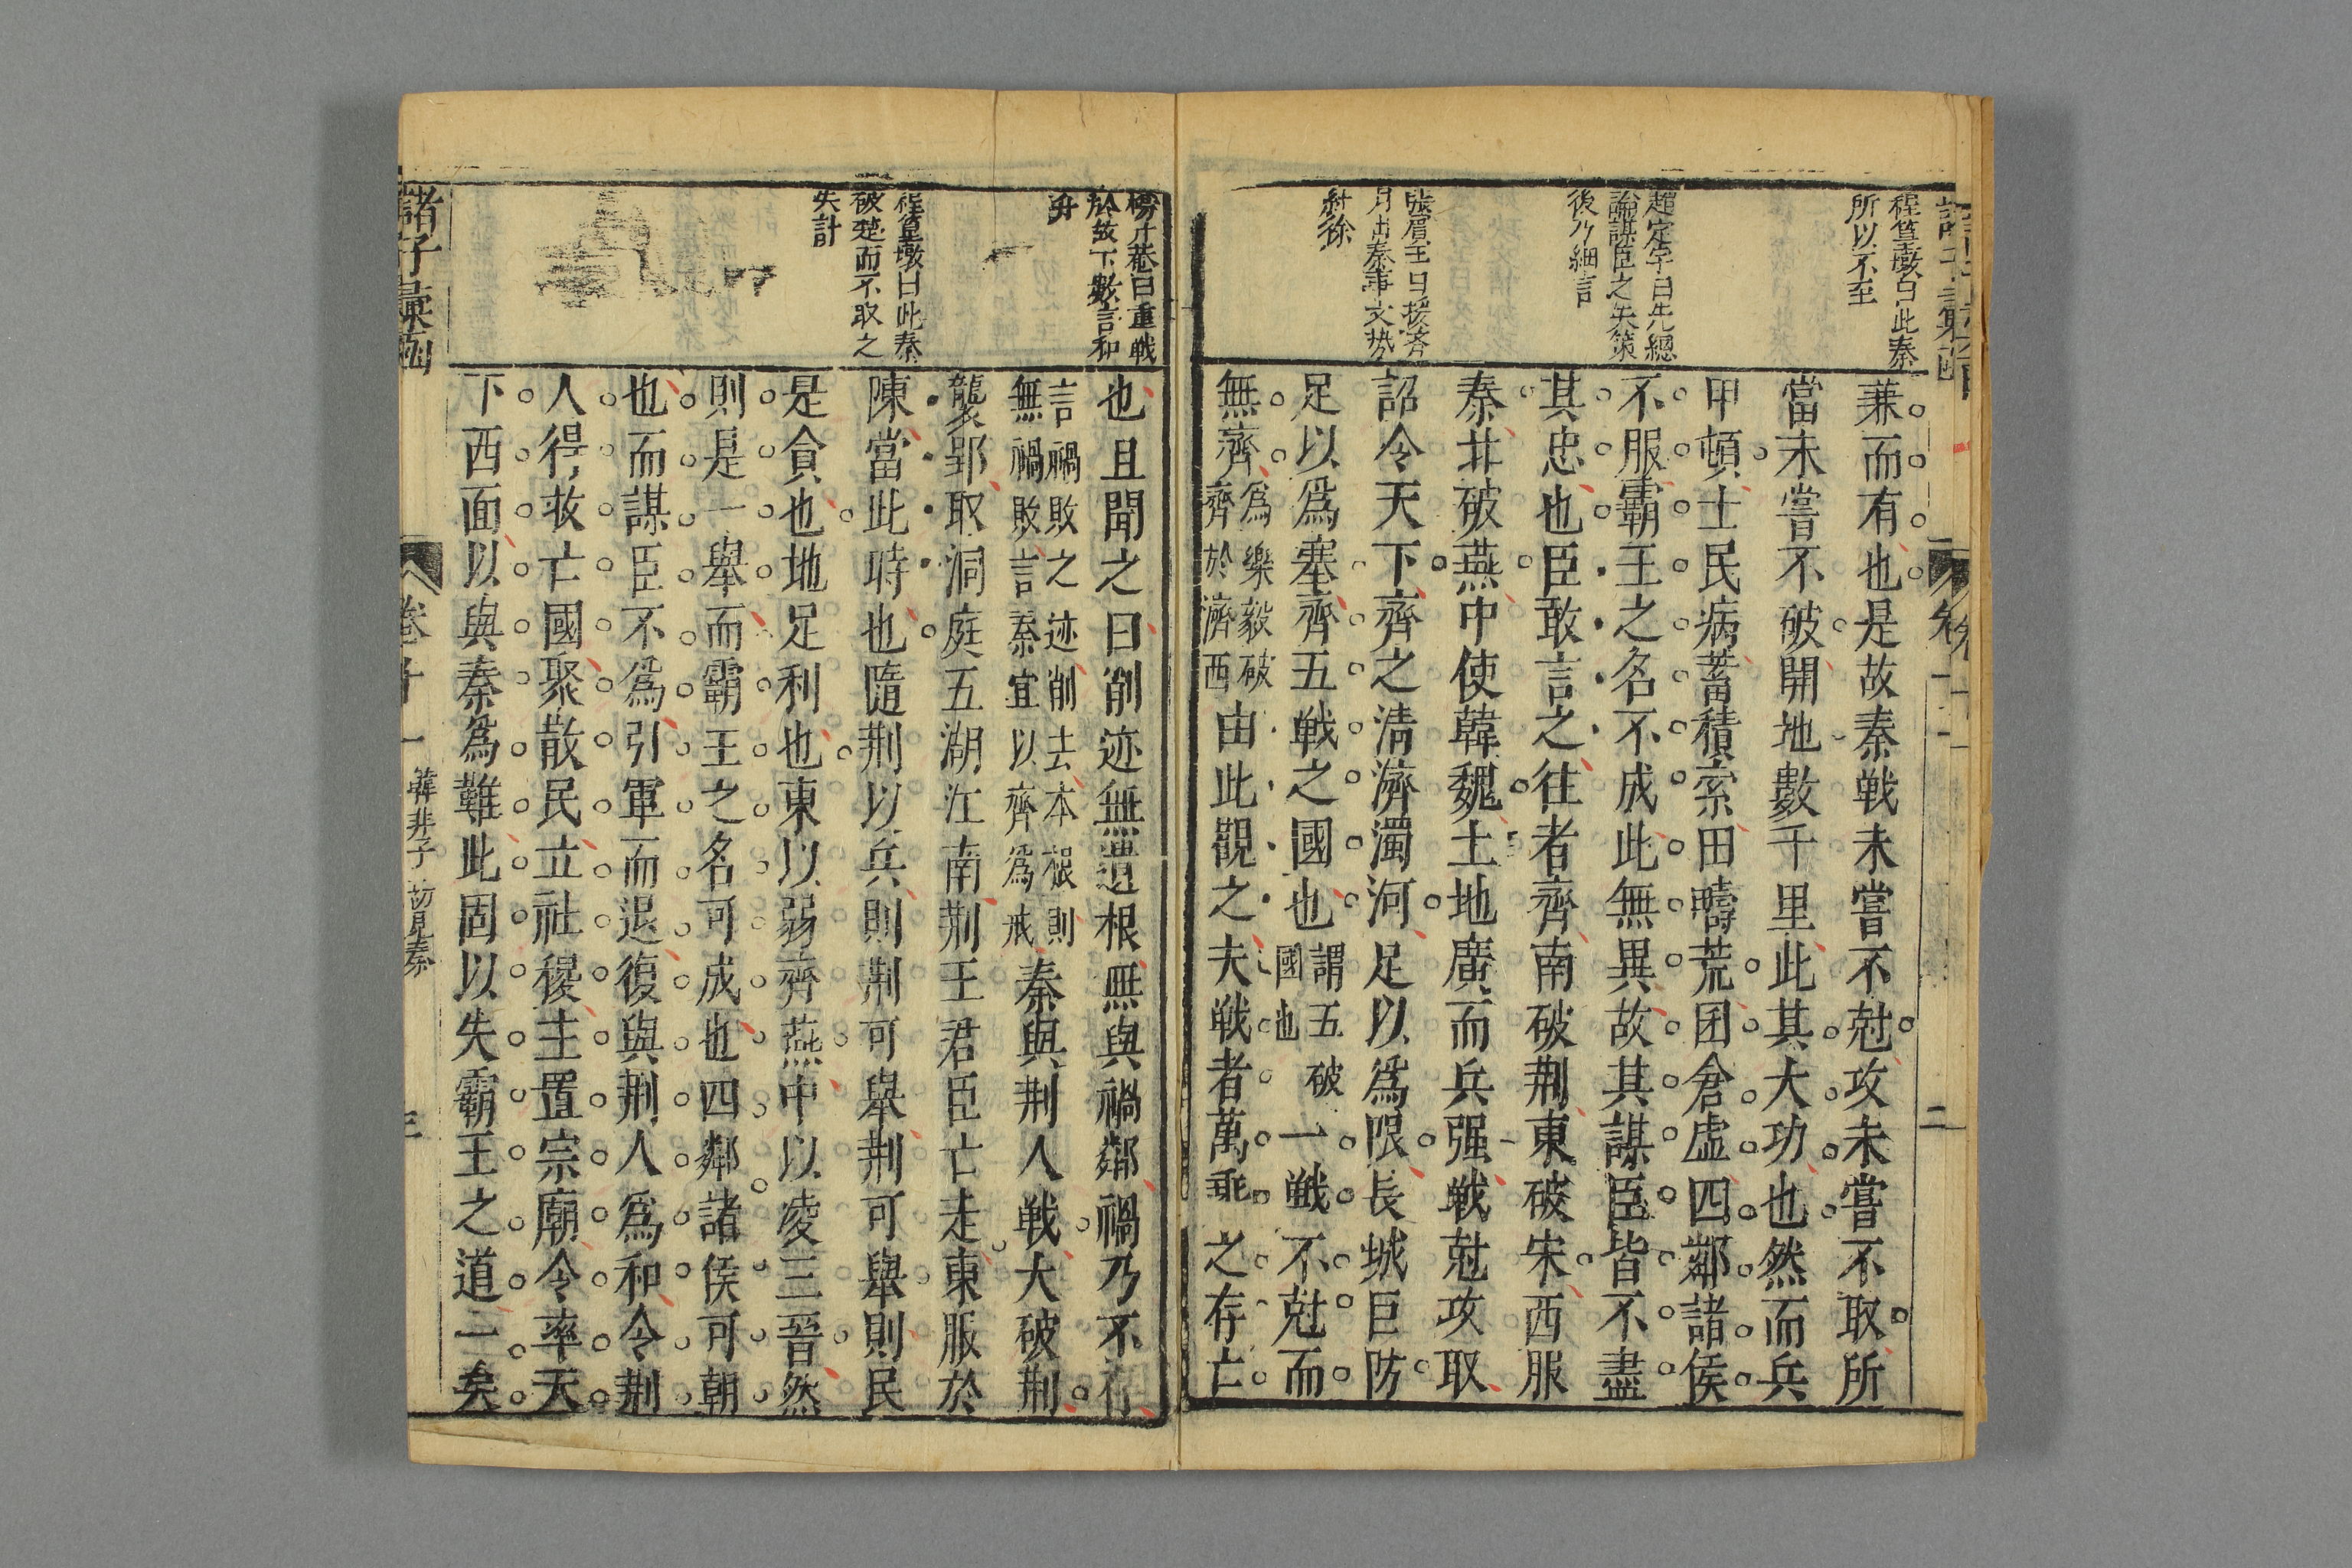 程篁墩曰此秦
所以不至
趙定宇曰先總
論謀臣之失策
後乃細言
張眉王曰援齊
紆徐
兼而有也是故秦戰未嘗不尅攻未嘗不取所
當未嘗不破開地數千里此其大功也然而兵
甲頓士民病蓄積索田疇荒囷倉虛四鄰諸侯
不服霸王之名不成此無異故其謀臣皆不盡
其忠也臣敢言之往者齊南破荆東破宋西服
秦北破燕中使韓魏土地廣而兵强戰尅攻取
詔令天下齊之清濟濁河足以爲限長城巨防
足以爲塞齊五戰之國也謂五破國也一戰不尅而
無齊爲樂毅破齊於濟西由此觀之夫戰者萬乘之存亡
二
曰重戰
於故下數言和
程篁墩曰此秦
破楚而不取之
失計
也且聞之曰削迹無遺根無與禍鄰禍乃不存
言禍敗之迹削去本根則無禍敗言秦宜以齊爲戒秦與荆人戰大破荆
襲郢取洞庭五湖江南荆王君臣亡走東服於
陳當此時也隨荆以兵則荆可舉荆可舉則民
是貪也地足利也東以弱齊燕中以凌三晉然
則是一舉而霸王之名可成也四鄰諸侯可朝
也而謀臣不爲引軍而退復與荆人爲和令荆
人得收亡國聚散民立社稷主置宗廟令率天
下西面以與秦爲難此固以失霸王之道一矣
諸子彙函
卷十一
韓非子
初見秦
三